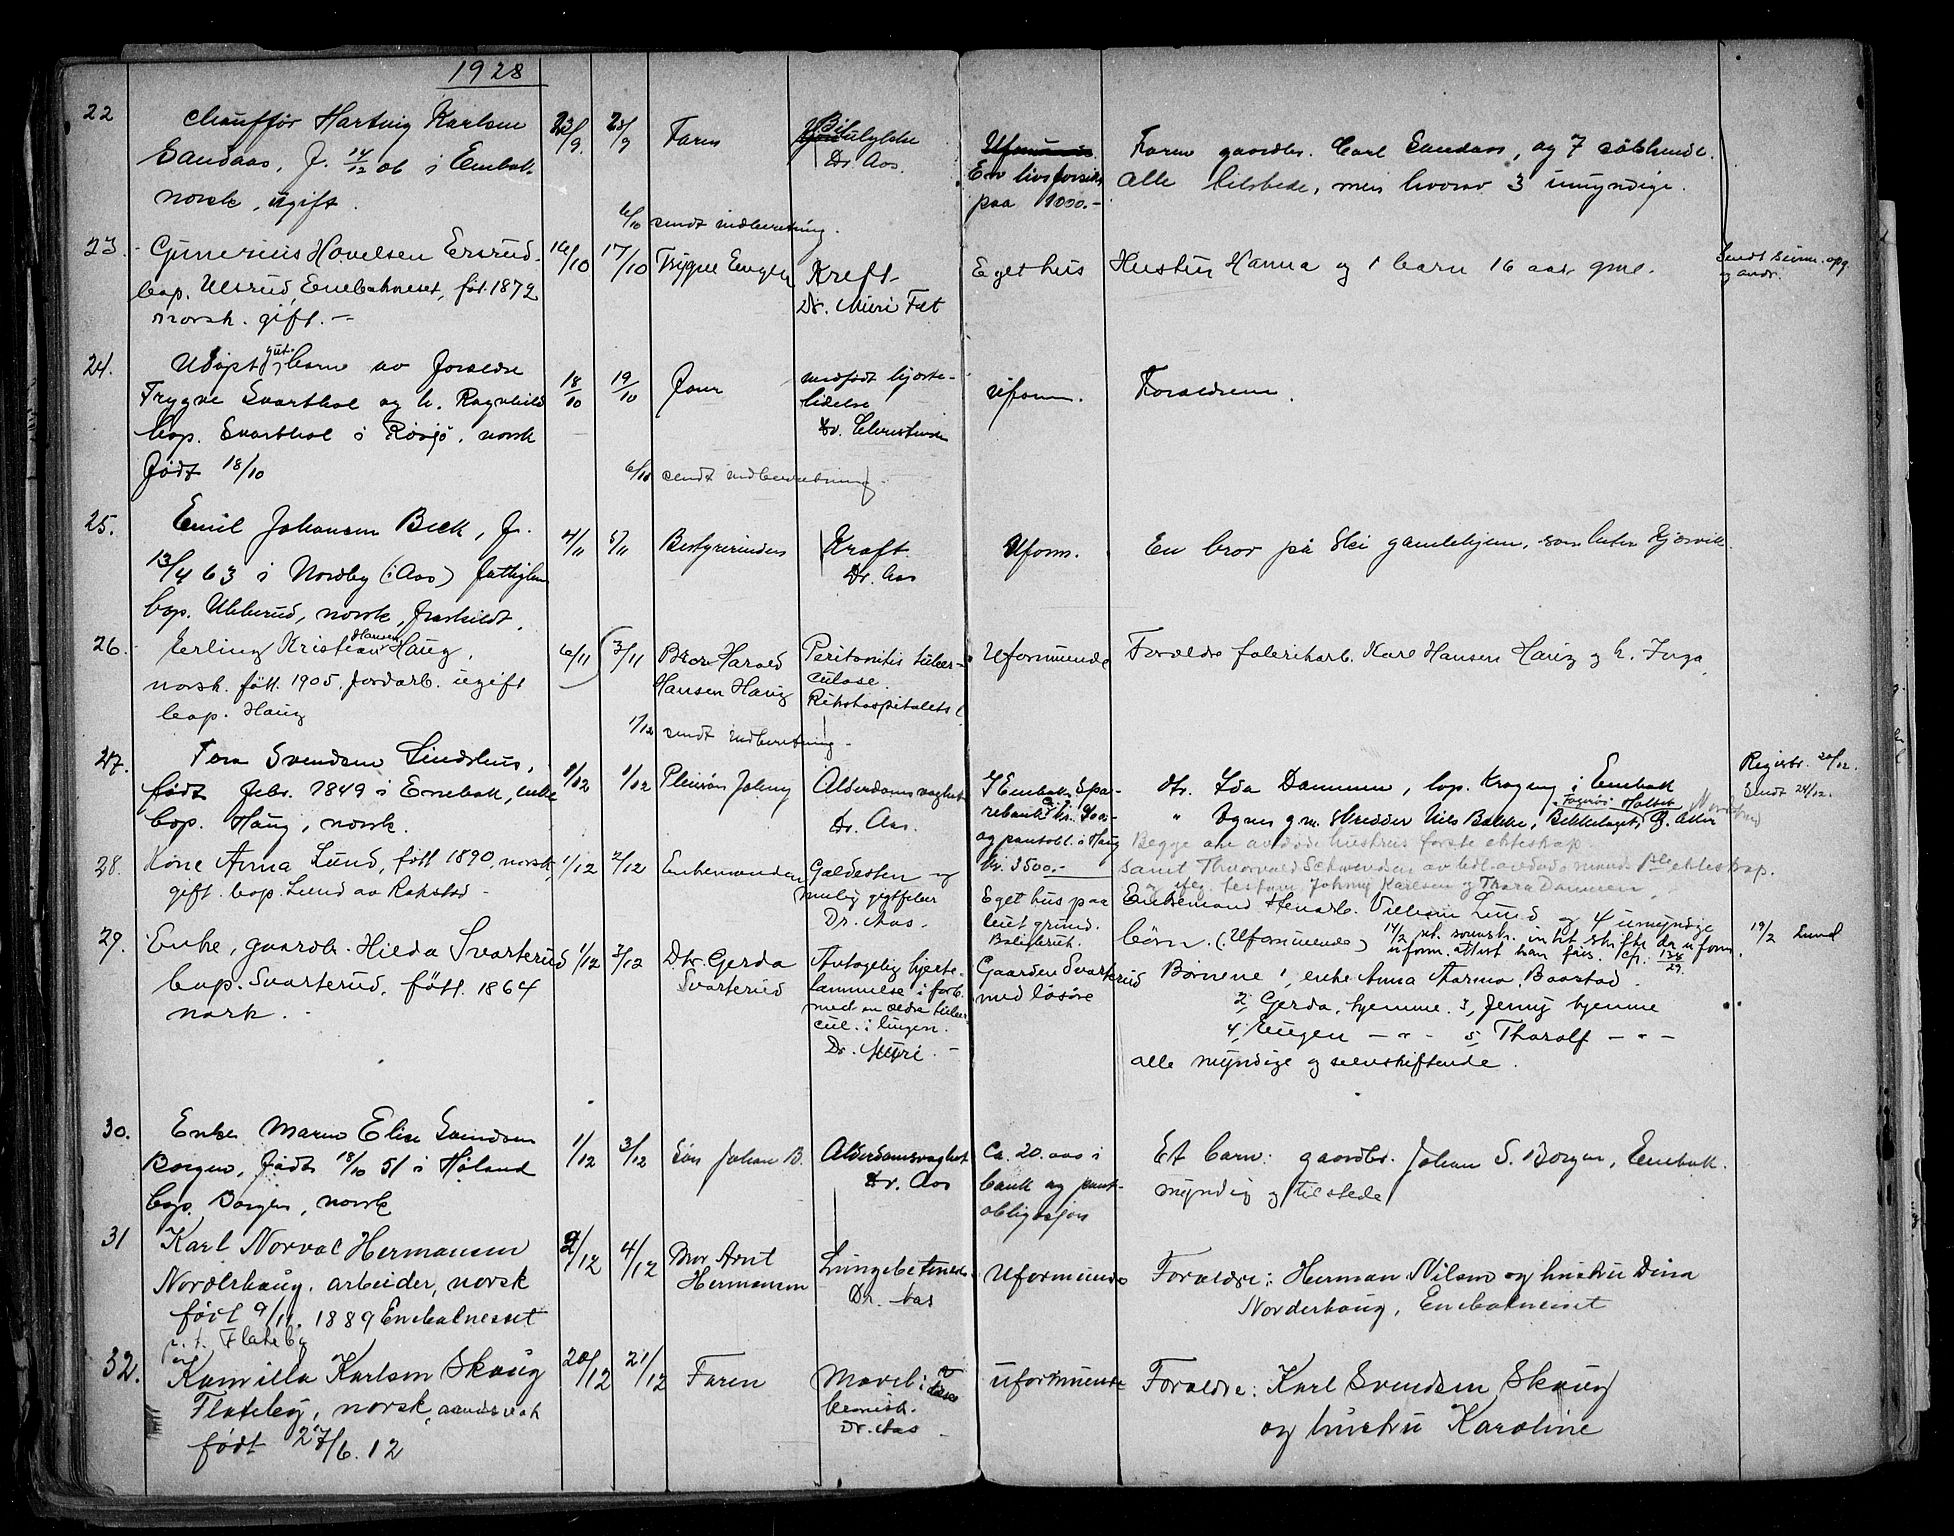 1928
22
Chauffør Hartvig Karlsen
Sandaas, f. 14/12 06 i Enebak
norsk, ugift.
23/9
25/9
Faren
Bilulykke
Dr. Aas.
En livsforsikr.
paa 1000.-
Faren gaardbr. Carl Sandaas, og 7 søskende.
Alle tilstede, men hvorav 3 umyndige.
6/10 sendt indberetning.
23.
Gunerius Hovelsen Ersrud
bop. Ulsrud, Enebakneset, føt. 1872
norsk. gift. -
16/10
17/10
Trygve Engen
Kreft
Dr. Muri Fet
Eget hus
Hustru Hanna og 1 barn 16 aar gml.
Sendt
og andr.
24.
Udøpt gut barn av foreldre
Trygve Svarthol og h. Ragnhild
bop. Svarthol i Råsjø, norsk
født 18/10
18/10
19/10
Faren
medfødt hjerte-
lidelse
Dr. Christensen
Uform.
Foreldrene.
6/11 sendt indberetning
25.
Emil Johansen Beck, f.
13/4 63 i Nordby (i Aas) fattiglem
bop. Ukkerud, norsk, fraskildt.
4/11
5/11
Bestyrerinden
Kreft
Dr. Aas
Uform.
En bror på Ski gamlehjem, som heter Kjærvik.
26.
Erling Kristian Hansen Haug,
norsk. fött. 1905. Jordarb. ugift
bop. Haug
6/11
3/11
Bror Harald
Hansen Haug
Peritonitis tuber-
culose.
Rikshospitalet
Uformuende
Forældre fabrikarb. Karl Hansen Haug og h. Inga
1/12 sendt indberetning -
27.
Tora Svendsen Lindhus,
født febr. 1849 i Enebak, enke
bop. Haug, norsk.
1/12
1/12
Pleiesøn Johny
Alderdomsvaghet
Dr. Aas.
I Enebak Spa-
rebank ca. kr. 400.-
og pantobl. i Haug
kr. 3500.-
dtr. Ida Dammen, bop. Kragrud i Enebak
" Agnes g.m. Skredder Nils Bakke, Bekkelaget pr. Oslo
Begge av avdøde hustrus første ekteskap
samt Thorvald Svendsen av tidl. avdøde mands 1ste ekteskap.
og iflg. testam. Johny Karlsen og Thora Dammen
Registr. 20/12.
Sendt 24/12.
28.
Kone Anna Lund, fött 1890 norsk,
gift. bop. Lund av Rakstad -
1/12
2/12
Enkemanden
Galdesten og
mulig gigtfeber
Dr. Aas.
Eget hus paa
leiet grund.
Enkemand Stenarb. Vilhelm Lund og 4 umyndige
børn. (Uformuende)
19/2 Lund
29.
Enke, gaardbr. Hilda Svarterud
bop. Svarterud. fött. 1864
norsk. -
1/12
3/12
Dtr. Gerda
Svarterud
Antagelig hjerte-
lammelse i forb.
med en ældre tuber-
cul. i lungen.
Dr. Muri. -
Gaarden Svarterud
med løsøre
Børnene 1, enke Anna Baastad.
2, Gerda, hjemme. 3, Jenny hjemme
4, Eugen - " - 5, Tharalf - " -
alle myndige og selvskiftende.
30.
Enke Maren Elise Svendsen
Borgen, født 18/10 51 i Høland
bop. Borgen, norsk
1/12
3/12
Søn Johan B.
Alderdomsvaghet
Dr. Aas
Ca. 20.000 i
bank og pant-
obligasjon
Et barn: gaardbr. Johan S. Borgen, Enebak.
myndig og tilstede
31
Karl Norval Hermansen
Norderhaug. arbeider, norsk
født 9/11. 1889 Enebaknesset
2/12
4/12
Bror Arnt
Hermansen
Lungebetændelse
Dr. Aas
Uformuende
Forældre: Herman Nilsen og hustru Dina
Norderhaug, Enebakneset
32.
Kamilla Karlsen Skaug
Flateby, norsk, aandssvak
født 27/6. 12
20/12
21/12
Faren
Dr. Aas
uformuende
Forældre: Karl Svendsen Skaug
og hustru Karoline